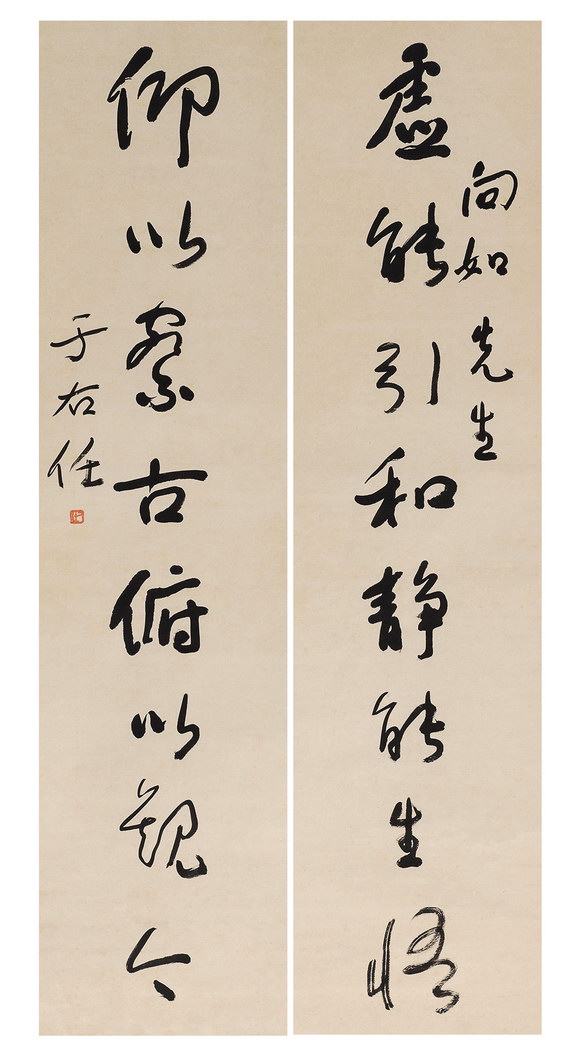 虚能引和静能生悟
向如先生
仰以察古俯以观今
于右任